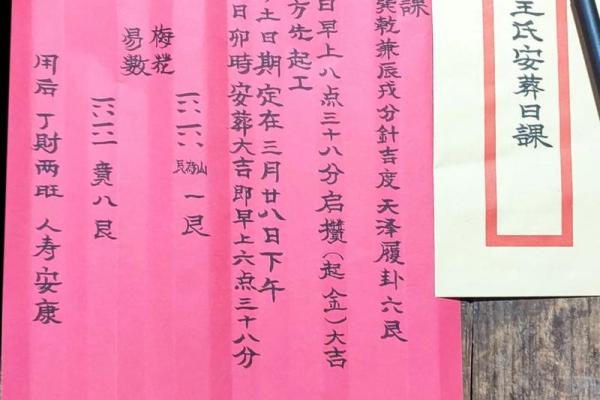 王氏安葬日課
課
巽乾兼辰戌分針吉度 天泽履卦六艮
日早上八点三十八分启攒(起金)大吉
方先起工
土日期定在三月廿八日下午
日卯時安葬大吉即早上六点三十八分
山為艮 一艮
梅
易數
賁八艮
用后丁財两旺 人寿安康